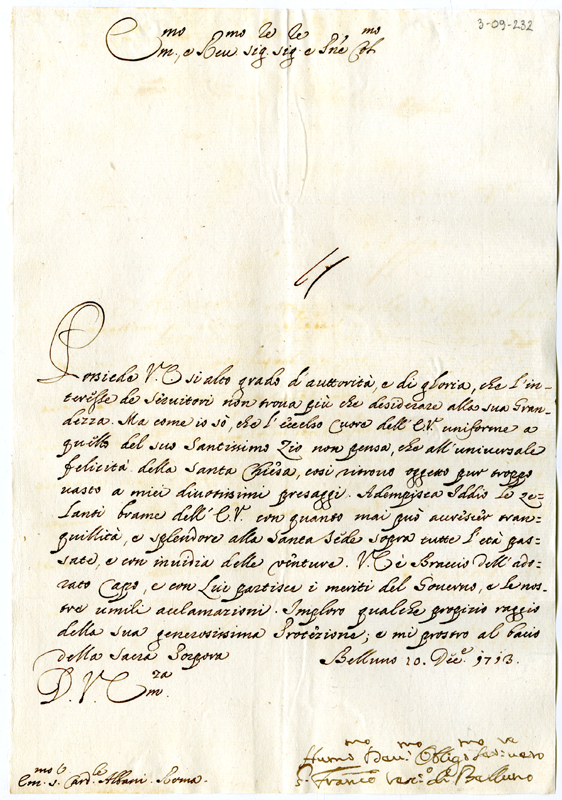 3-09-232
Em.mo, e Reu.mo Sig.re Sig.re e Pne Col.mo
Possiede V.E. si alto grado d'auttorità, e di gloria, che l'in=
teresse de Seruitori non troua più che desiderare alla sua Gran=
dezza. Ma come io sò, che l'eccelso Cuore dell'E.V. uniforme a
quello del suo Santissimo Zio non pensa, che all'uniuersale
felicità della Santa Chiesa, così ritrouo oggetto pur troppo
uasto a miei diuotissimi presaggi. Adempisca Iddio le ze=
lanti brame dell'E.V. con quanto mai può accrescer tran=
quillità, e splendore alla Santa Sede sopra tutte l'età pas=
sate, e con inuidia delle uenture. V.E. è Braccio dell'ado=
rato Capo, e con Lui partisce i meriti del Gouerno, e le nos=
tre umili acclamazioni. Imploro qualche propizio raggio
della sua generosissima Protezione; e mi prostro al bacio
della Sacra Porpora Belluno 20. Dic.e 1713.
D. V. Em.za
Hum.mo Deu.mo Oblig.mo Ser.re vero
Em.mo S. Card.le Albani. Roma.
S. Franc.co Vesc.o di Belluno